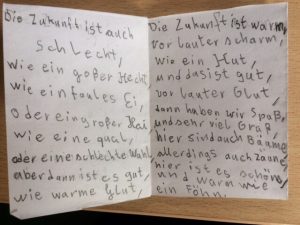 Die Zukunft ist auch
schlecht,
wie ein goßer Hecht,
wie ein faules Ei,
oder ein großer Hai
wie eine qual,
oder eine schlechte Wahl
aber dann ist es gut
wie warme Glut,
Die Zukunft ist warm,
vor lauter scharm,
wie ein Hut,
und das ist gut,
vor lauter Glut,
dann haben wir Spaß,
und sehr viel Graß,
hier sind auch Bääme,
allerdings auch Zäune,
hier ist es schön,
und warm wie
ein Föhn.